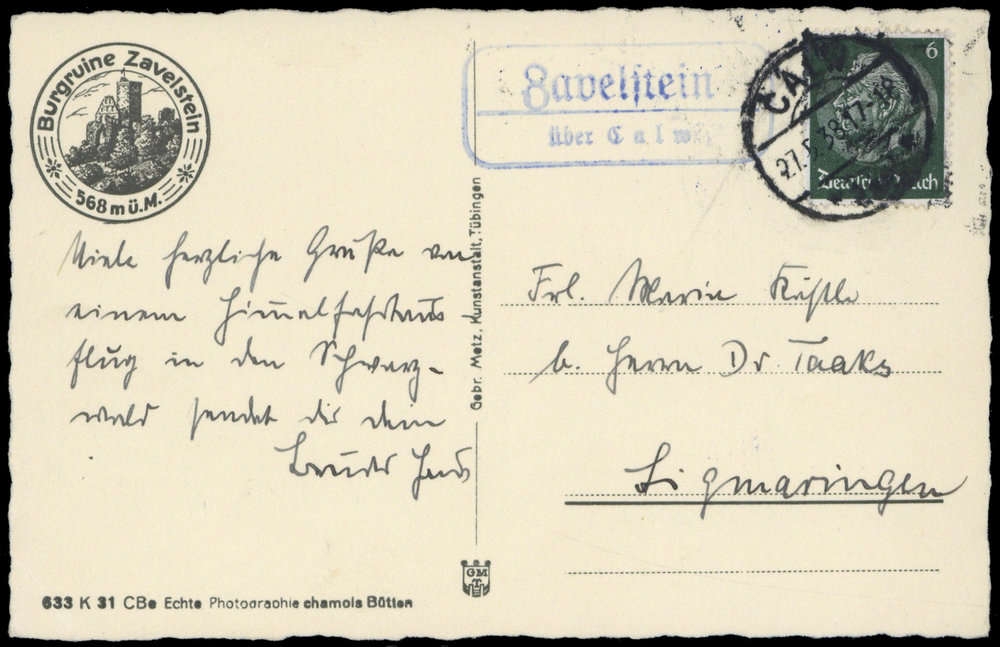 Burgruine Zavelstein
568 m ü. M.
Zavelstein
über Calw
CALW
27.5.38.17-18
6
Deutsches Reich
Viele herzliche Grüße von
einem Himmelfahrtaus
flug in den Schwarz-
wald sendet dir dein
Bruder Hans
Gebr. Metz, Kunstanstalt, Tübingen
Frl. Maria Küstle
b. Herrn Dr Taaks
Sigmaringen
GMT
633 K 31 CBe Echte Photographie chamois Bütten